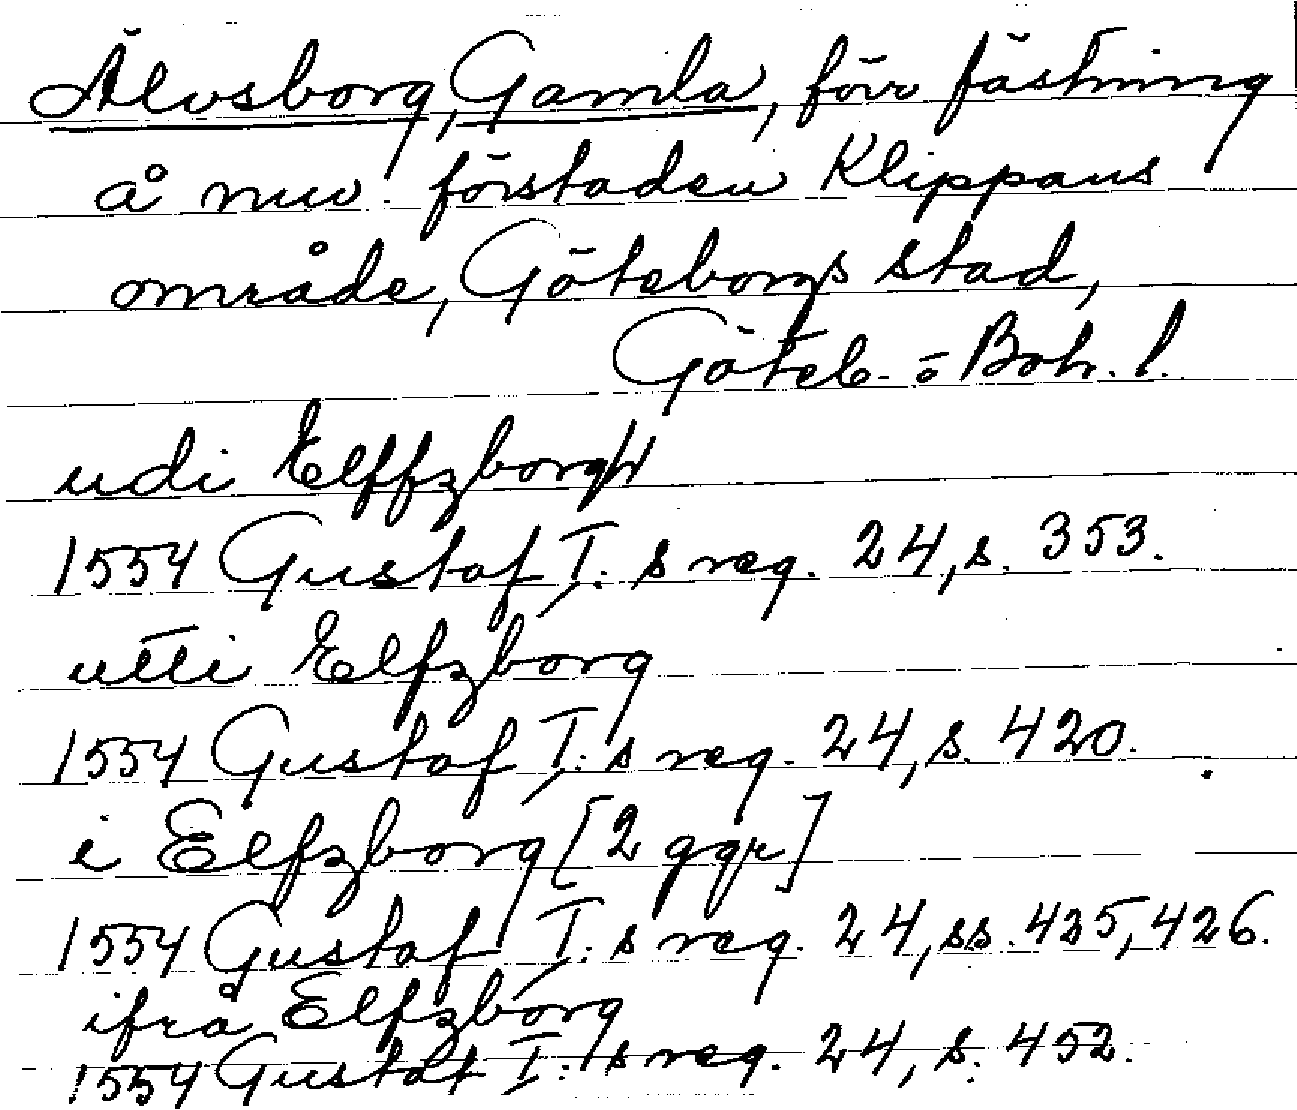 Älvsborg, Gamla, förr fästning
å nuv. förstaden Klippans
område, Göteborgs stad,
Göteb. o Boh. l.
udi Elffzborgh
1554 Gustaf I:s reg. 24, s. 353.
utti Elfzborg
1554 Gustaf I:s reg. 24, s. 420.
i Elfzborg [2 ggr]
1554 Gustaf I:s reg. 24, ss. 425, 426.
ifrå Elfzborg
1554 Gustaf I:s reg. 24, s. 452.